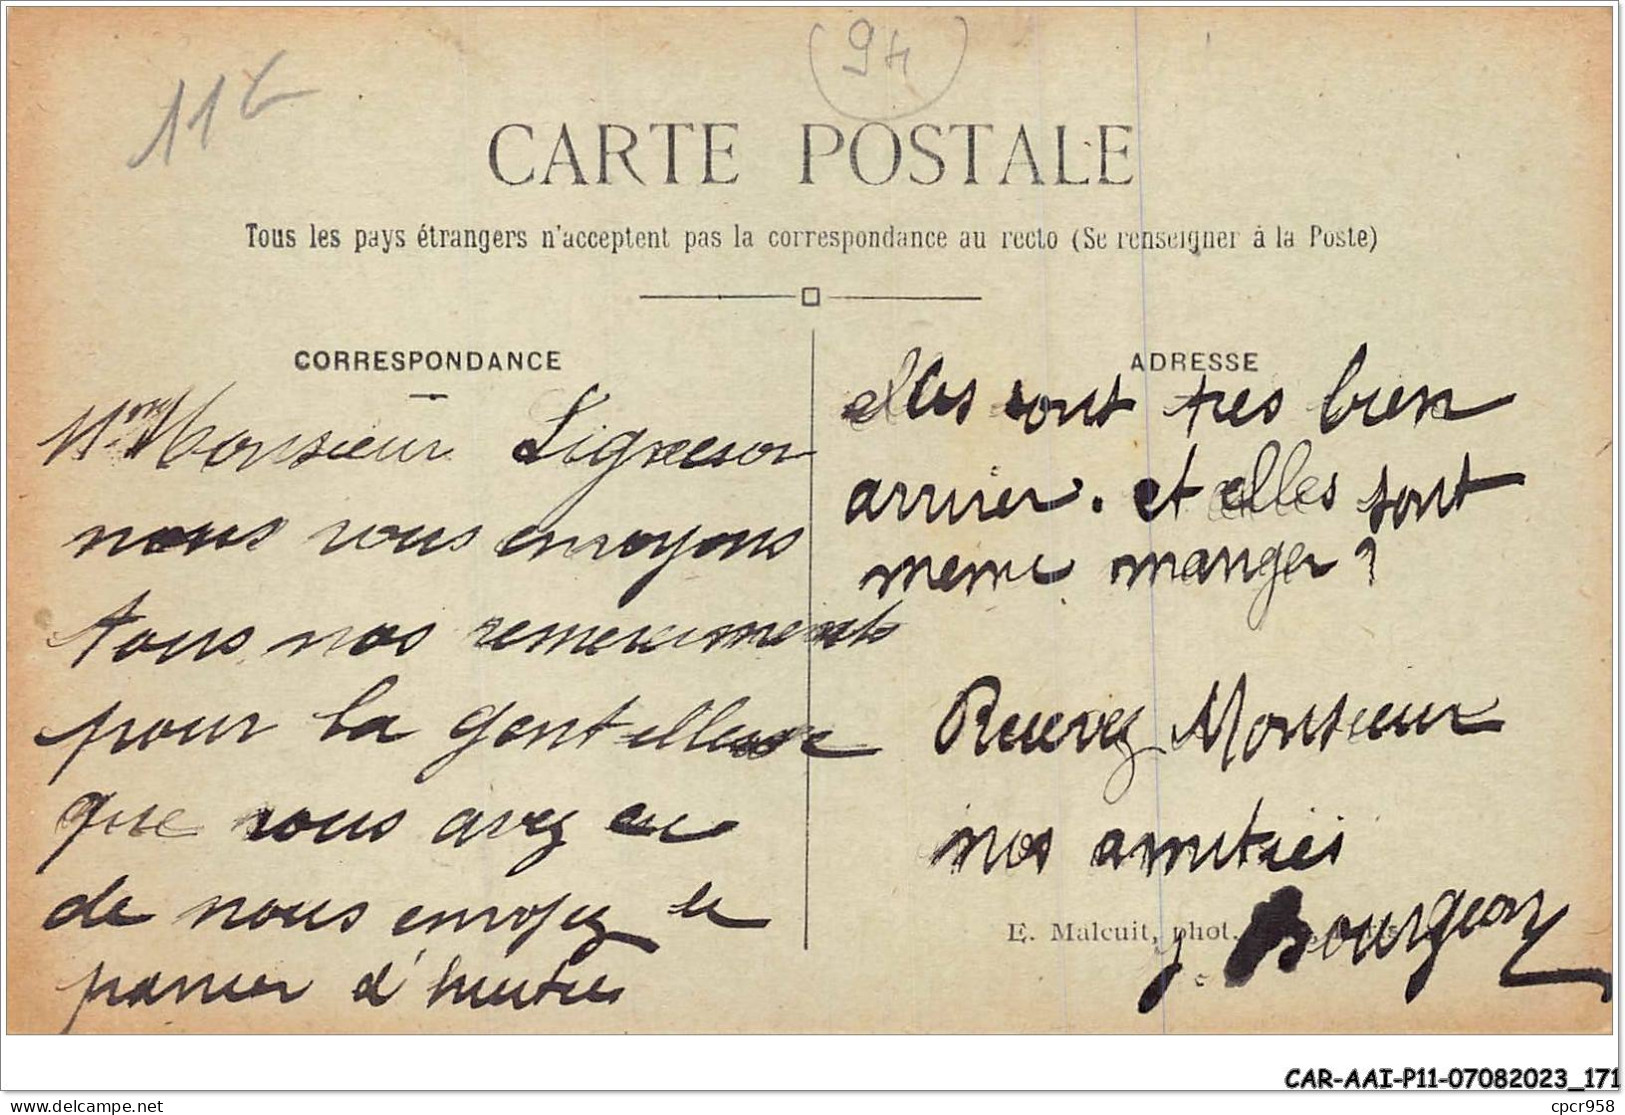 116
(94)
CARTE POSTALE
Tous les pays étrangers n'acceptent pas la correspondance au recto (Se renseigner à la Poste)
CORRESPONDANCE
Monsieur
nous vous envoyons
tous nos remerciments
pour la gentillesse
que vous avez eu
de nous envoyez le
panier d'huitres
ADRESSE
elles sont tres bien
arriver. et elles sont
meme manger ?
Recevez Monsieur
nos amitiés
E. Malcuit, phot.
J Bourgeon
CAR-AAI-P11-07082023_171
delcampe.net
cpcr958